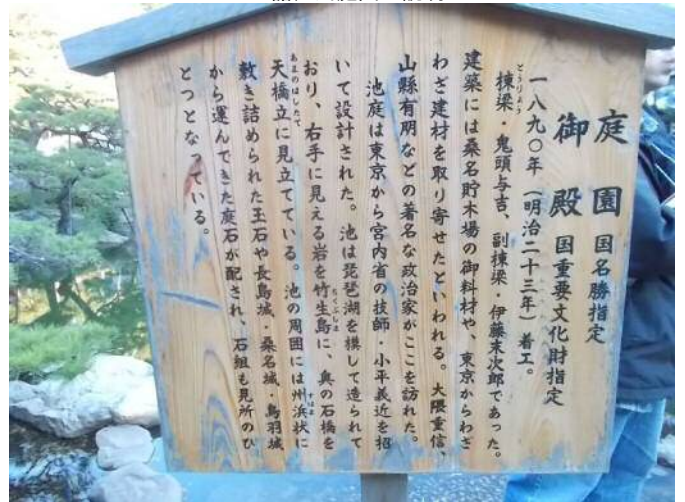 庭園 国名勝指定
御殿 国重要文化財指定
一八九〇年（明治二十三年）着工。
棟梁・鬼頭与吉、副棟梁・伊藤末次郎であった。
とうりょう
建築には桑名貯木場の御料材や、東京からわざ
わざ建材を取り寄せたといわれる。大隈重信、
山縣有朋などの著名な政治家がここを訪れた。
池庭は東京から宮内省の技師・小平義近を招
いて設計された。池は琵琶湖を模して造られて
おり、右手に見える岩を竹生島に、奥の石橋を
ちくぶしま
天橋立に見立てている。池の周囲には州浜状に
あまのはしたて
すはま
敷き詰められた玉石や長島城・桑名城・鳥羽城
から運んできた庭石が配され、石組も見所のひ
とつとなっている。